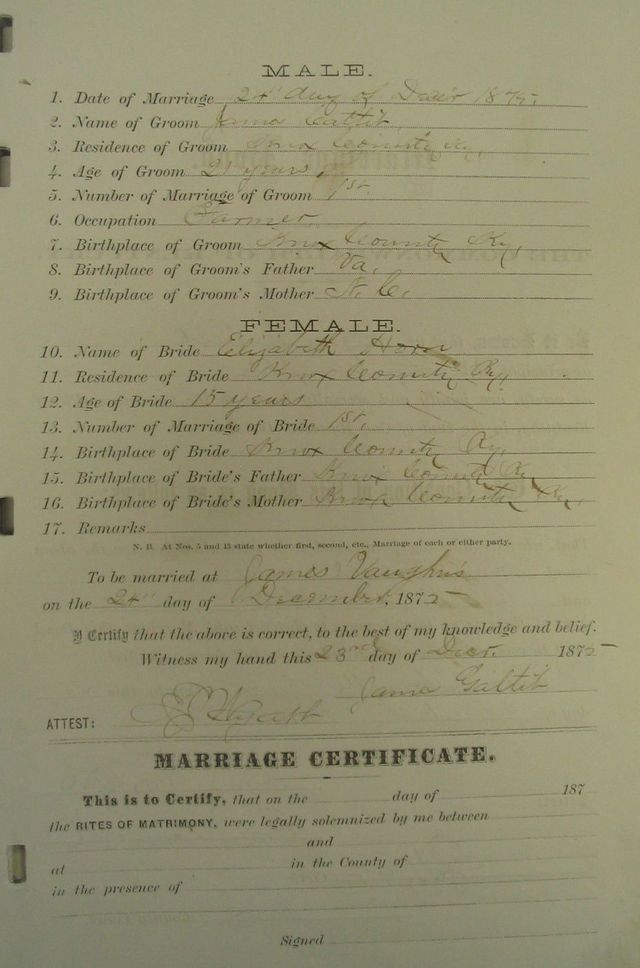 MALE.
1. Date of Marriage 24" day of Decr 1875.
2. Name of Groom James
3. Residence of Groom Knox County Ky,
4. Age of Groom 21 years,
5. Number of Marriage of Groom 1st.
6. Occupation Farmer.
7. Birthplace of Groom Knox County Ky,
8. Birthplace of Groom's Father Va.
9. Birthplace of Groom's Mother N. C.
FEMALE.
10. Name of Bride Elizabeth Horn
11. Residence of Bride Knox County Ky.
12. Age of Bride 15 years
13. Number of Marriage of Bride 1st.
14. Birthplace of Bride Knox County Ky,
15. Birthplace of Bride's Father Knox County Ky
16. Birthplace of Bride's Mother Knox County Ky,
17. Remarks
N. B. At Nos. 5 and 13 state whether first, second, etc., Marriage of each or either party.
To be married at James Vaughn's
on the 24" day of December, 1875
I Certify that the above is correct, to the best of my knowledge and belief.
Witness my hand this 23rd day of Decr. 1875
James
ATTEST:
MARRIAGE CERTIFICATE.
This is to Certify, that on the day of 187
the RITES OF MATRIMONY, were legally solemnized by me between
and
at in the County of
in the presence of
Signed